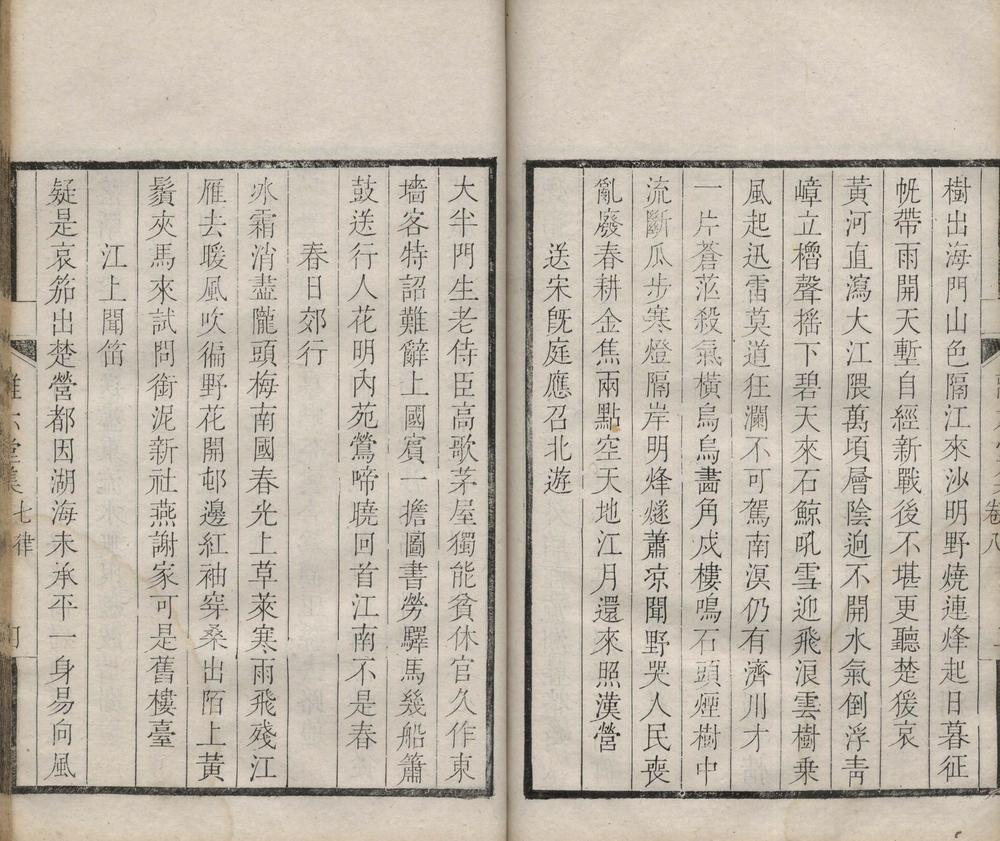 樹出海門山色隔江來沙明野燒連烽起日暮征
帆帶雨開天塹自經新戰後不堪更聽楚猨哀
黃河直瀉大江隈萬頃層陰逈不開水氣倒浮靑
嶂立櫓聲摇下碧天來石鯨吼雪迎飛浪雲樹乗
風起迅雷莫道狂瀾不可駕南溟仍有濟川才
一片蒼茫殺氣橫烏烏畵角戍樓鳴石頭煙樹中
流斷瓜步寒燈隔岸明烽燧蕭凉聞野哭人民喪
亂廢春耕金焦兩點空天地江月還來照漢營
送宋旣庭應召北遊
大半門生老侍臣高歌茅屋獨能貧休官久作東
墻客特詔難辭上國賓一擔圖書勞驛馬幾船簫
鼓送行人花明内苑鶯啼曉回首江南不是春
春日郊行
氷霜消盡隴頭梅南國春光上草萊寒雨飛殘江
雁去暖風吹徧野花開邨邊紅袖穿桑出陌上黃
鬚夾馬來試問銜泥新社燕謝家可是舊樓臺
江上聞笛
疑是哀笳出楚營都因湖海未承平一身易向風
堂集
七律
卷八